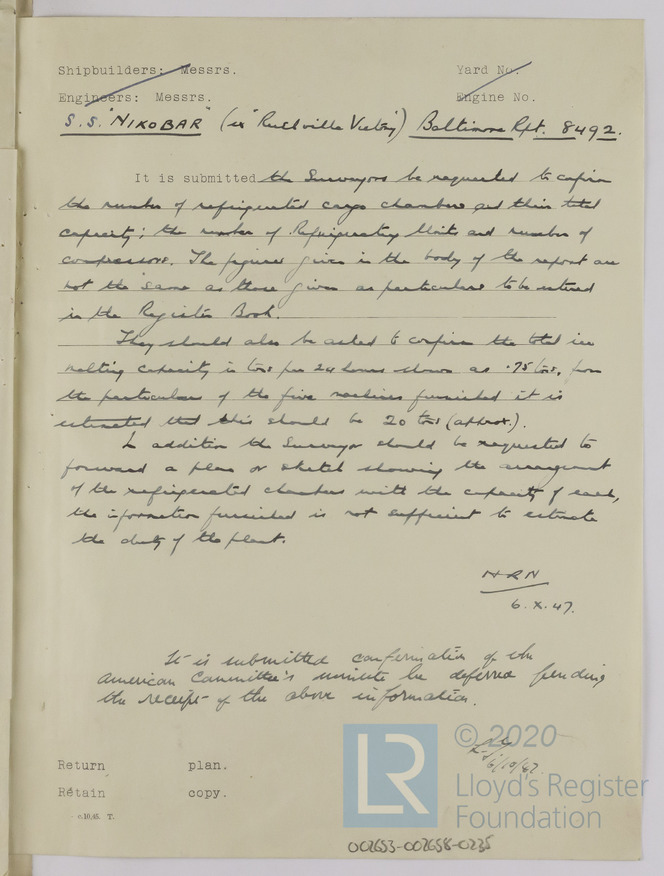 Shipbuilders: Messrs. Yard No.
Engineers: Messrs. Engine No.
S.S. "NIKOBAR" (ex "Victory") Baltimore Rpt. 8492.
It is submitted the Surveyors be requested to confirm
the number of refrigerated cargo chambers and their total
capacity; the number of Refrigerating Units and number of
compressors. The figures given in the body of the report are
not the same as those given as particulars to be entered
in the Register Book.
They should also be asked to confirm the total ice
melting capacity in tons per 24 hours shown as .75 tons, from
the particulars of the five machines furnished it is
estimated that this should be 20 tons (approx.).
In addition the Surveyor should be requested to
forward a plan or sketch showing the arrangement
of the refrigerated chambers with the capacity of each,
the information furnished is not sufficient to estimate
the duty of the plant.
HRN
6.X.47.
It is submitted confirmation of the
American Committee's minute be deferred pending
the receipt of the above information.
6/10/47
Return plan.
Retain copy.
c.10,45. T.
© 2020
LR
Lloyd's Register
Foundation
002653-002658-0235